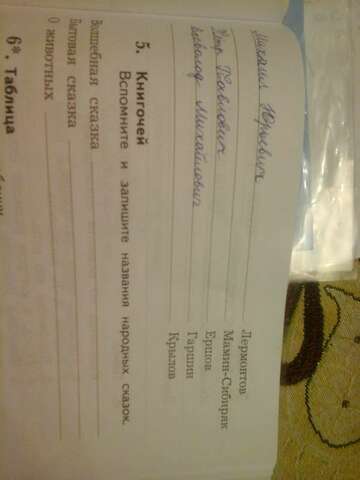 Михаил Юрьевич Лермонтов
Мамин-Сибиряк
Петр Павлович Ершов
Всеволод Михайлович Гаршин
Крылов
5. Книгочей
Вспомните и запишите названия народных сказок.
Волшебная сказка
Бытовая сказка
О животных
6*. Таблица